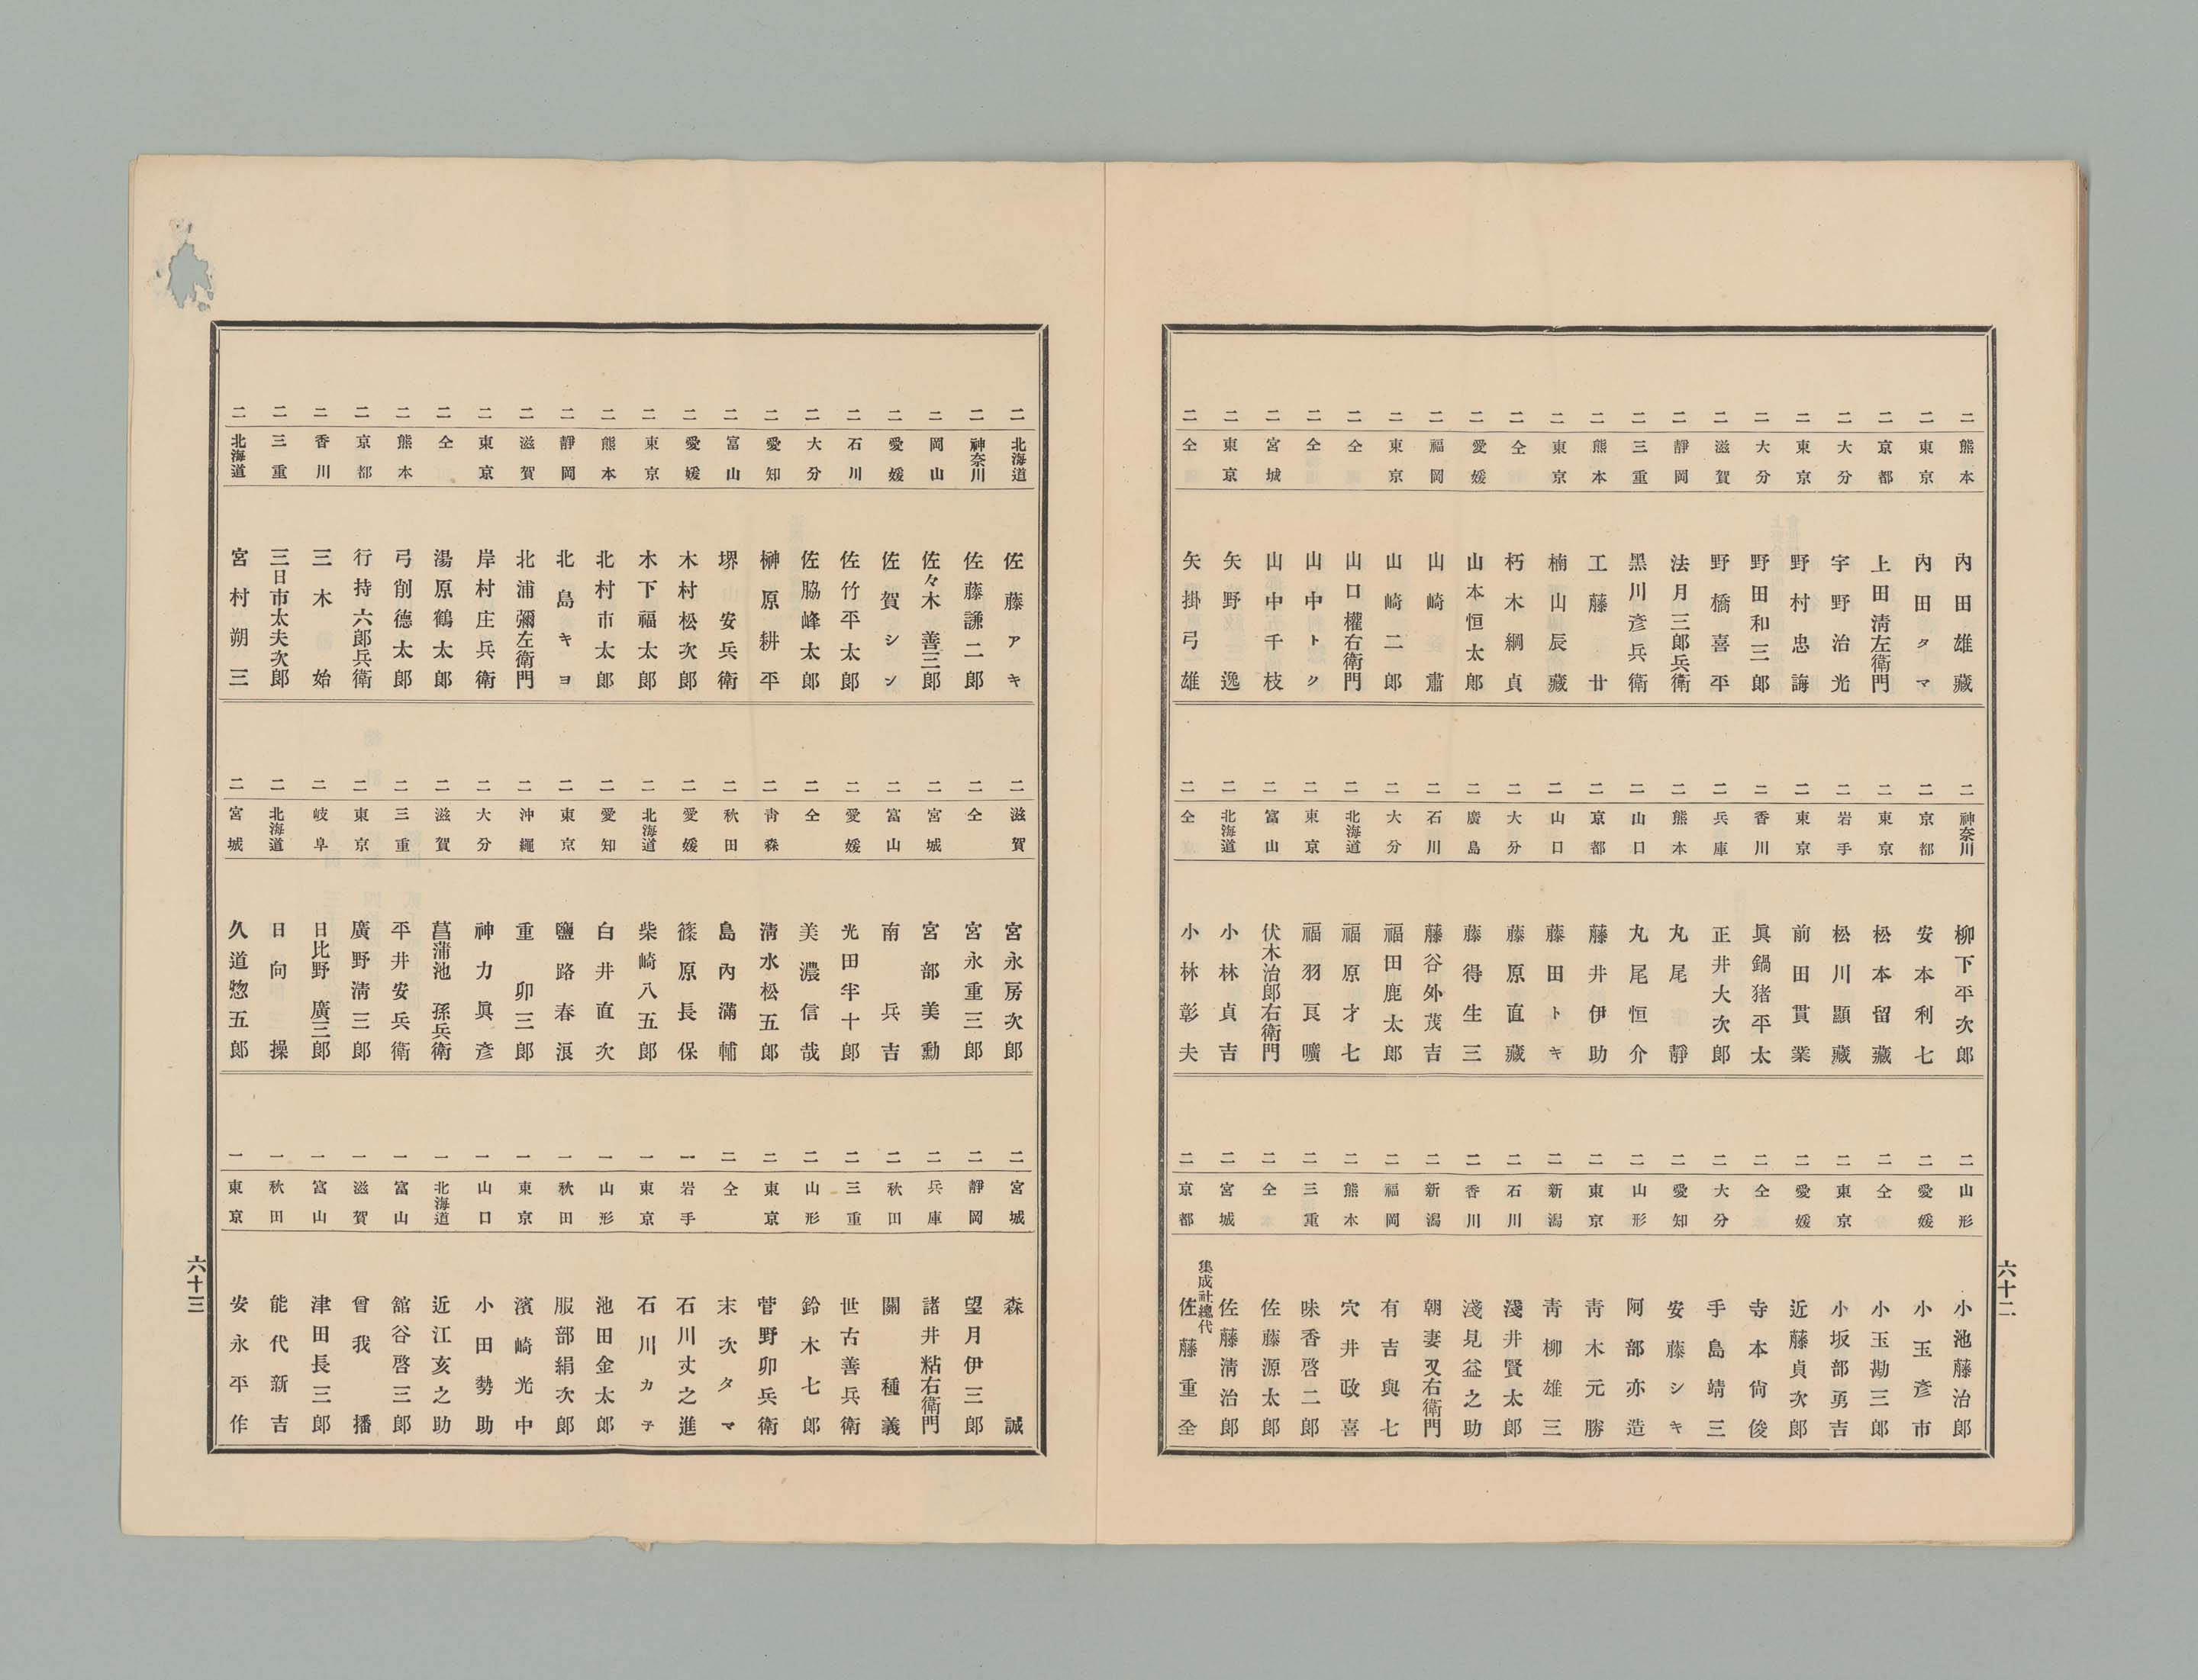 二 熊本 內田雄藏
二 東京 內田タマ
二 京都 上田淸左衛門
二 大分 宇野治光
二 東京 野村忠誨
二 大分 野田和三郎
二 滋賀 野橋喜平
二 靜岡 法月三郎兵衛
二 三重 黑川彥兵衛
二 熊本 工藤廿
二 東京 楠山辰藏
二 仝 朽木綱貞
二 愛媛 山本恒太郎
二 福岡 山崎肅
二 東京 山崎二郎
二 仝 山口權右衛門
二 仝 山中トク
二 宮城 山中千枝
二 東京 矢野逸
二 仝 矢掛弓雄
二 神奈川 柳下平次郎
二 京都 安本利七
二 東京 松本留藏
二 岩手 松川顯藏
二 東京 前田貫業
二 香川 眞鍋猪平太
二 兵庫 正井大次郎
二 熊本 丸尾靜
二 山口 丸尾恒介
二 京都 藤井伊助
二 山口 藤田トキ
二 大分 藤原直藏
二 廣島 藤得生三
二 石川 藤谷外茂吉
二 大分 福田鹿太郎
二 北海道 福原才七
二 東京 福羽艮曠
二 富山 伏木治郎右衛門
二 北海道 小林貞吉
二 仝 小林彰夫
二 山形 小池藤治郎
二 愛媛 小玉彥市
二 仝 小玉勘三郎
二 東京 小坂部勇吉
二 愛媛 近藤貞次郎
二 仝 寺本尙俊
二 大分 手島靖三
二 愛知 安藤シキ
二 山形 阿部亦造
二 東京 靑木元勝
二 新潟 靑柳雄三
二 石川 淺井賢太郎
二 香川 淺見益之助
二 新潟 朝妻又右衛門
二 福岡 有吉與七
二 熊本 穴井政喜
二 三重 味香啓二郎
二 仝 佐藤源太郎
二 宮城 佐藤淸治郎
二 京都 集成社總代 佐藤重全
六十二
二 北海道 佐藤アキ
二 神奈川 佐藤謙二郎
二 岡山 佐々木善三郎
二 愛媛 佐賀シン
二 石川 佐竹平太郎
二 大分 佐脇峰太郎
二 愛知 榊原耕平
二 富山 堺安兵衛
二 愛媛 木村松次郎
二 東京 木下福太郎
二 熊本 北村市太郎
二 靜岡 北島キヨ
二 滋賀 北浦彌左衛門
二 東京 岸村庄兵衛
二 仝 湯原鶴太郎
二 熊本 弓削德太郎
二 京都 行持六郎兵衛
二 香川 三木始
二 三重 三日市太夫次郎
二 北海道 宮村朔三
二 滋賀 宮永房次郎
二 仝 宮永重三郎
二 宮城 宮部美勳
二 富山 南兵吉
二 愛媛 光田半十郎
二 仝 美濃信哉
二 靑森 淸水松五郎
二 秋田 島內滿輔
二 愛媛 篠原長保
二 北海道 柴崎八五郎
二 愛知 白井直次
二 東京 鹽路春浪
二 沖繩 重卯三郎
二 大分 神力眞彥
二 滋賀 菖蒲池孫兵衛
二 三重 平井安兵衛
二 東京 廣野淸三郎
二 岐阜 日比野廣三郎
二 北海道 日向操
二 宮城 久道惣五郎
二 宮城 森誠
二 靜岡 望月伊三郎
二 兵庫 諸井粘右衛門
二 秋田 關種義
二 三重 世古善兵衛
二 山形 鈴木七郎
二 東京 菅野卯兵衛
二 仝 末次タマ
一 岩手 石川丈之進
一 東京 石川カ子
一 山形 池田金太郎
一 秋田 服部絹次郎
一 東京 濱崎光中
一 山口 小田勢助
一 北海道 近江亥之助
一 富山 舘谷啓三郎
一 滋賀 曾我播
一 富山 津田長三郎
一 秋田 能代新吉
一 東京 安永平作
六十三